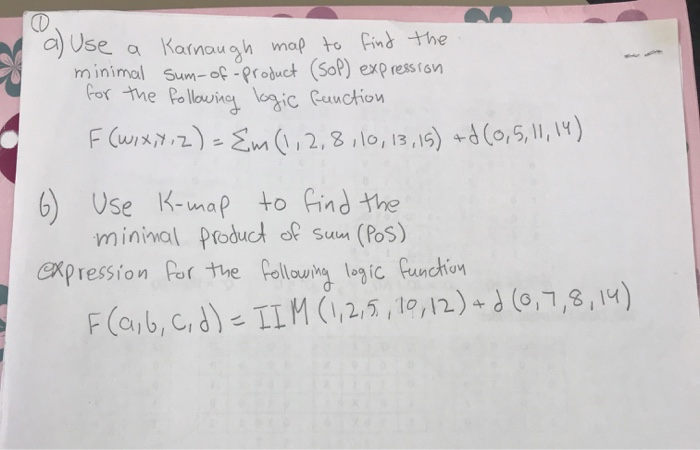 ①
a) Use a Karnaugh map to find the
minimal sum-of-product (SoP) expression
for the following logic function
F(w,x,y,z) = Σm(1,2,8,10,13,15) +d(0,5,11,14)
b) Use K-map to find the
mininal product of sum (PoS)
expression for the following logic function
F(a,b,c,d) = IIM(1,2,5,10,12)+d(0,7,8,14)